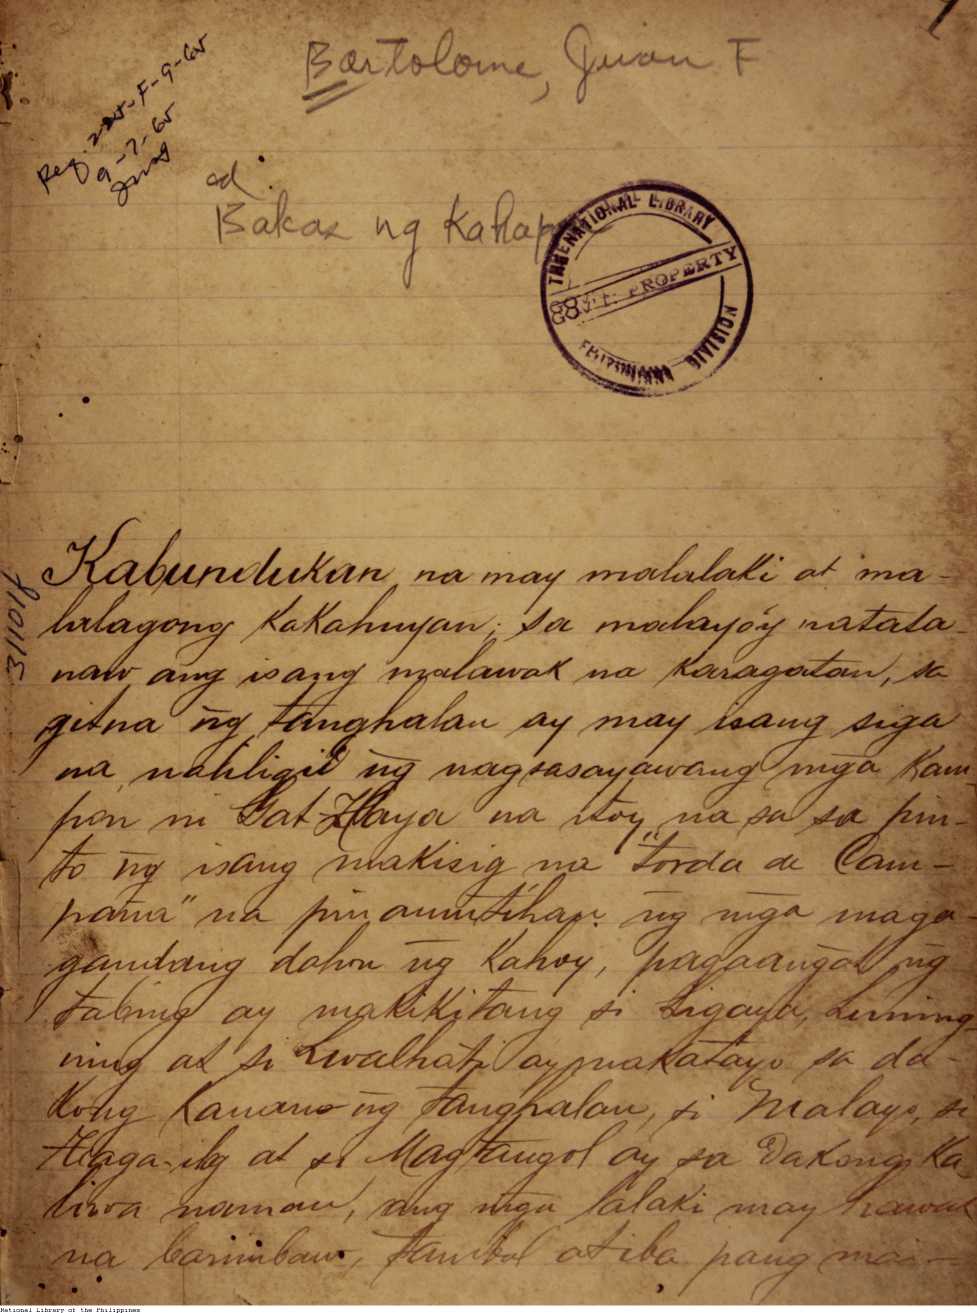 Bartolome, Juan F
Reg. F-9-65
9-7-65
ed.
Bakas ng Kahapon
THE NATIONAL LIBRARY
GOV'T. PROPERTY
FILIPINIANA DIVISION
31101f
Kabundukan na may malalaki at ma-
lalagong kakahuyan; sa malayo'y natata-
naw ang isang malawak na karagatan, sa
gitna ng̃ tanghalan ay may isang siga
na naliligid ng̃ nagsasayawang mg̃a kam-
pon ni Gat-Haya na ito'y na sa sa pin-
to ng̃ isang makisig na "torda de Cam-
paña" na pinamutihan ng̃ mg̃a maga-
gandang dahon ng̃ kahoy, pagaangat ng̃
tabing ay makikitang si Ligaya, Luning
ning at si Luwalhati ay makatayo sa da-
kong kanan ng̃ tanghalan, si Malayo, si
Taga-ilog at si Magtangol ay sa dakong ka
liwa naman, ang mg̃a lalaki may hawak
na barimbaw, tambol at iba pang mai-
National Library of the Philippines